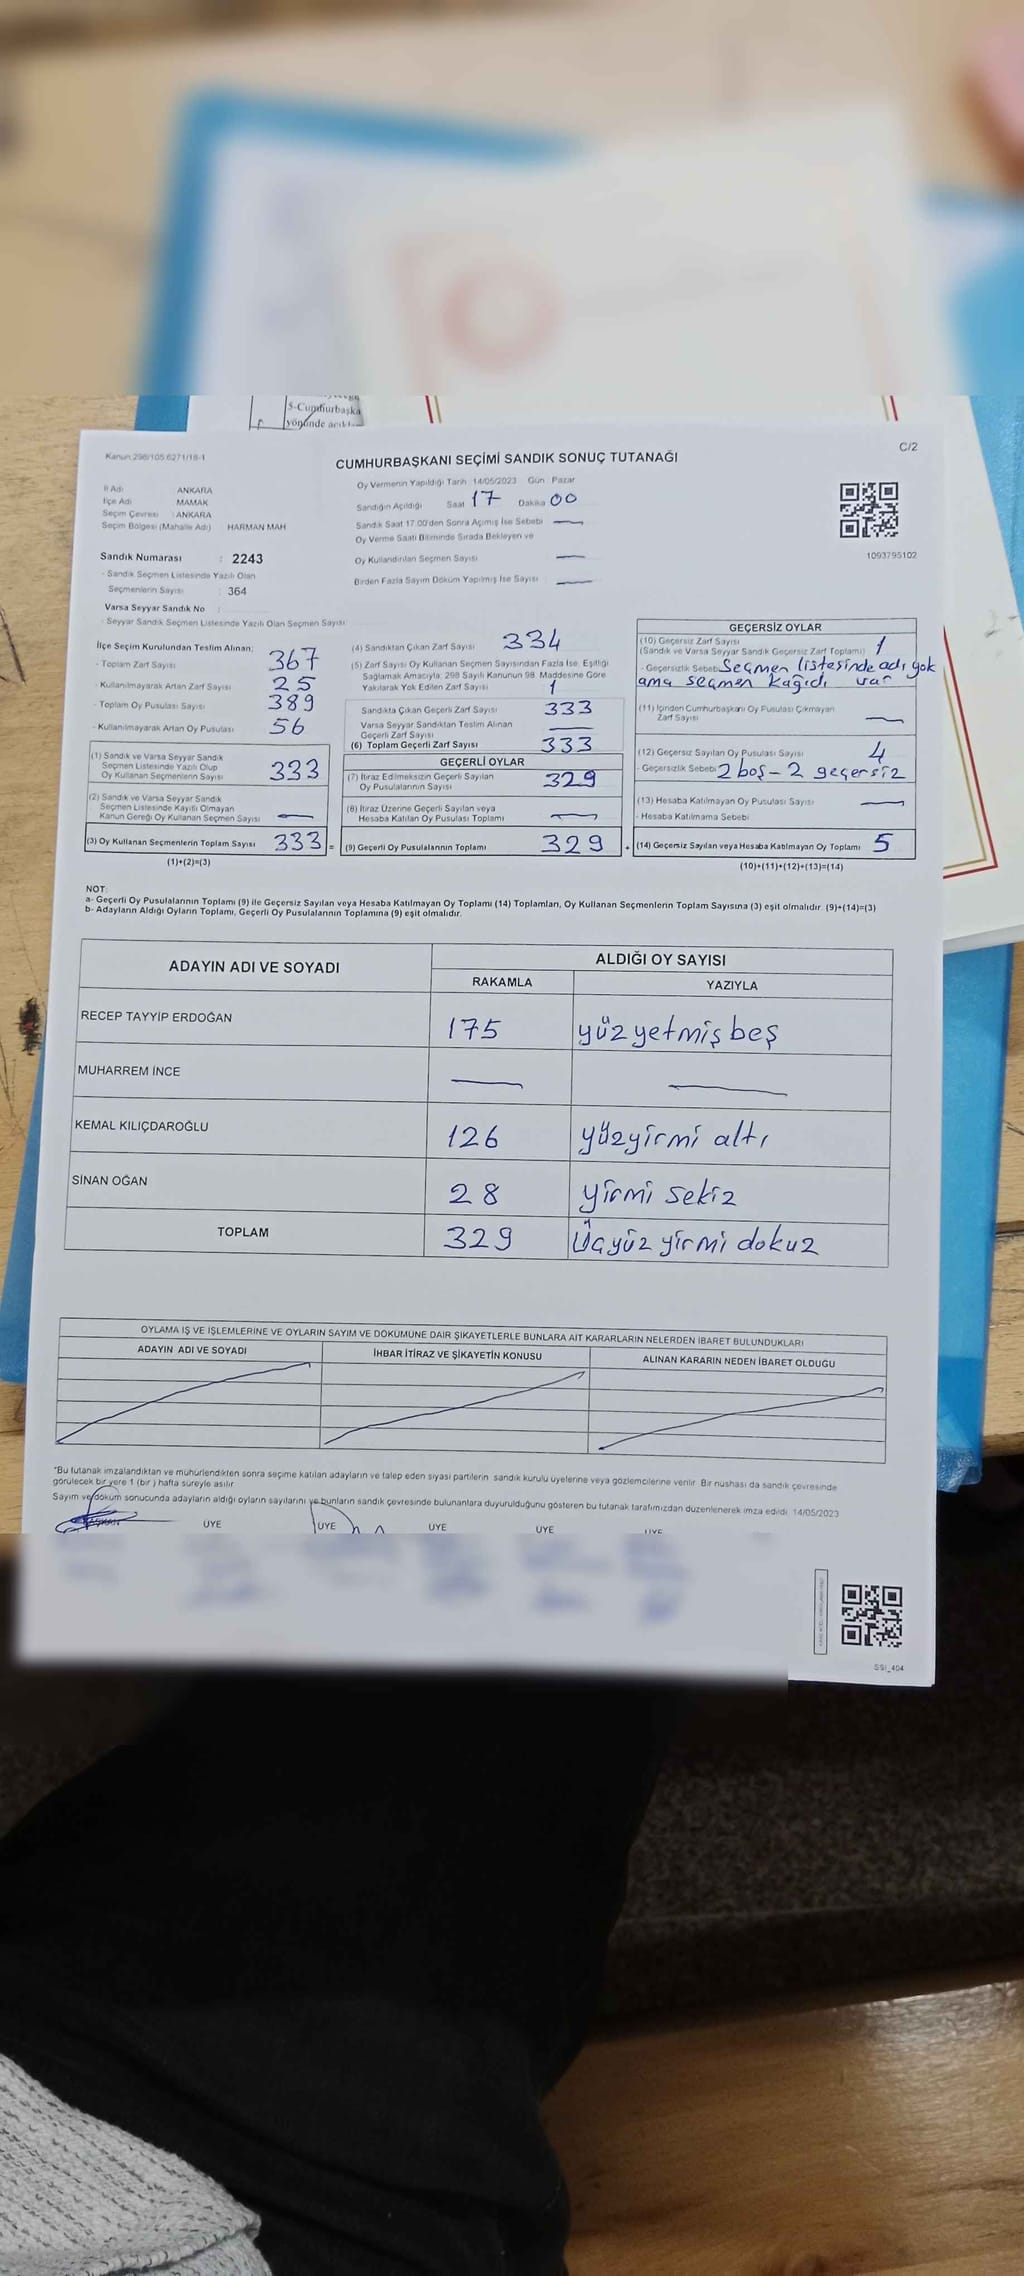 5-Cumhurbaşka
yönünde
Kanun:298/105 6271/18-1
C/2
CUMHURBAŞKANI SEÇİMİ SANDIK SONUÇ TUTANAĞI
İl Adı ANKARA
İlçe Adı MAMAK
Seçim Çevresi : ANKARA
Seçim Bölgesi (Mahalle Adı) HARMAN MAH
Sandık Numarası : 2243
- Sandık Seçmen Listesinde Yazılı Olan
Seçmenlerin Sayısı : 364
Varsa Seyyar Sandık No :
- Seyyar Sandık Seçmen Listesinde Yazılı Olan Seçmen Sayısı:
Oy Vermenin Yapıldığı Tarih 14/05/2023 Gün Pazar
Sandığın Açıldığı Saat 17 Dakika 00
Sandık Saat 17.00'den Sonra Açılmış İse Sebebi —
Oy Verme Saati Bitiminde Sırada Bekleyen ve
Oy Kullandırılan Seçmen Sayısı —
Birden Fazla Sayım Döküm Yapılmış İse Sayısı —
1093795102
İlçe Seçim Kurulundan Teslim Alınan;
- Toplam Zarf Sayısı 367
- Kullanılmayarak Artan Zarf Sayısı 25
- Toplam Oy Pusulası Sayısı 389
- Kullanılmayarak Artan Oy Pusulası 56
(1) Sandık ve Varsa Seyyar Sandık
Seçmen Listesinde Yazılı Olup
Oy Kullanan Seçmenlerin Sayısı 333
(2) Sandık ve Varsa Seyyar Sandık
Seçmen Listesinde Kayıtlı Olmayan
Kanun Gereği Oy Kullanan Seçmen Sayısı —
(3) Oy Kullanan Seçmenlerin Toplam Sayısı 333 =
(1)+(2)=(3)
(4) Sandıktan Çıkan Zarf Sayısı 334
(5) Zarf Sayısı Oy Kullanan Seçmen Sayısından Fazla İse, Eşitliği
Sağlamak Amacıyla, 298 Sayılı Kanunun 98. Maddesine Göre
Yakılarak Yok Edilen Zarf Sayısı 1
Sandıkta Çıkan Geçerli Zarf Sayısı 333
Varsa Seyyar Sandıktan Teslim Alınan
Geçerli Zarf Sayısı —
(6) Toplam Geçerli Zarf Sayısı 333
GEÇERLİ OYLAR
(7) İtiraz Edilmeksizin Geçerli Sayılan
Oy Pusulalarının Sayısı 329
(8) İtiraz Üzerine Geçerli Sayılan veya
Hesaba Katılan Oy Pusulası Toplamı —
(9) Geçerli Oy Pusulalarının Toplamı 329 +
GEÇERSİZ OYLAR
(10) Geçersiz Zarf Sayısı
(Sandık ve Varsa Seyyar Sandık Geçersiz Zarf Toplamı) 1
- Geçersizlik Sebebi Seçmen listesinde adı yok
ama seçmen kağıdı var
(11) İçinden Cumhurbaşkanı Oy Pusulası Çıkmayan
Zarf Sayısı —
(12) Geçersiz Sayılan Oy Pusulası Sayısı 4
- Geçersizlik Sebebi 2 boş - 2 geçersiz
(13) Hesaba Katılmayan Oy Pusulası Sayısı —
- Hesaba Katılmama Sebebi
(14) Geçersiz Sayılan veya Hesaba Katılmayan Oy Toplamı 5
(10)+(11)+(12)+(13)=(14)
NOT:
a- Geçerli Oy Pusulalarının Toplamı (9) ile Geçersiz Sayılan veya Hesaba Katılmayan Oy Toplamı (14) Toplamları, Oy Kullanan Seçmenlerin Toplam Sayısına (3) eşit olmalıdır. (9)+(14)=(3)
b- Adayların Aldığı Oyların Toplamı, Geçerli Oy Pusulalarının Toplamına (9) eşit olmalıdır.
ADAYIN ADI VE SOYADI
ALDIĞI OY SAYISI
RAKAMLA YAZIYLA
RECEP TAYYİP ERDOĞAN 175 yüz yetmiş beş
MUHARREM İNCE — —
KEMAL KILIÇDAROĞLU 126 yüzyirmi altı
SİNAN OĞAN 28 yirmi sekiz
TOPLAM 329 Üçyüz yirmi dokuz
OYLAMA İŞ VE İŞLEMLERİNE VE OYLARIN SAYIM VE DÖKÜMÜNE DAİR ŞİKAYETLERLE BUNLARA AİT KARARLARIN NELERDEN İBARET BULUNDUKLARI
ADAYIN ADI VE SOYADI İHBAR İTİRAZ VE ŞİKAYETİN KONUSU ALINAN KARARIN NEDEN İBARET OLDUĞU
*Bu tutanak imzalandıktan ve mühürlendikten sonra seçime katılan adayların ve talep eden siyasi partilerin sandık kurulu üyelerine veya gözlemcilerine verilir. Bir nüshası da sandık çevresinde
görülecek bir yere 1 (bir) hafta süreyle asılır.
Sayım ve döküm sonucunda adayların aldığı oyların sayılarını ve bunların sandık çevresinde bulunanlara duyurulduğunu gösteren bu tutanak tarafımızdan düzenlenerek imza edildi. 14/05/2023
BAŞKAN ÜYE ÜYE ÜYE ÜYE ÜYE
SSİ_404